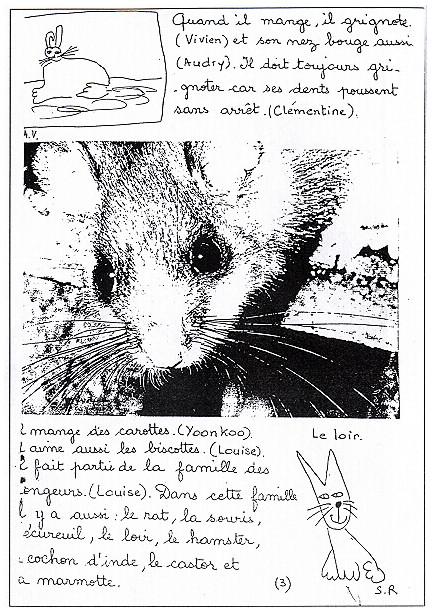 Quand il mange, il grignote.
(Vivien) et son nez bouge aussi
(Audry). Il doit toujours gri-
-gnoter car ses dents poussent
sans arrêt. (Clémentine).
A.V.
l mange des carottes. (Yoonkoo)
l aime aussi les biscottes. (Louise).
l fait partie de la famille des
ongeurs. (Louise). Dans cette famille
l y a aussi : le rat, la souris,
écureuil, le loir, le hamster,
cochon d'inde, le castor et
a marmotte.
Le loir.
S.R
(3)